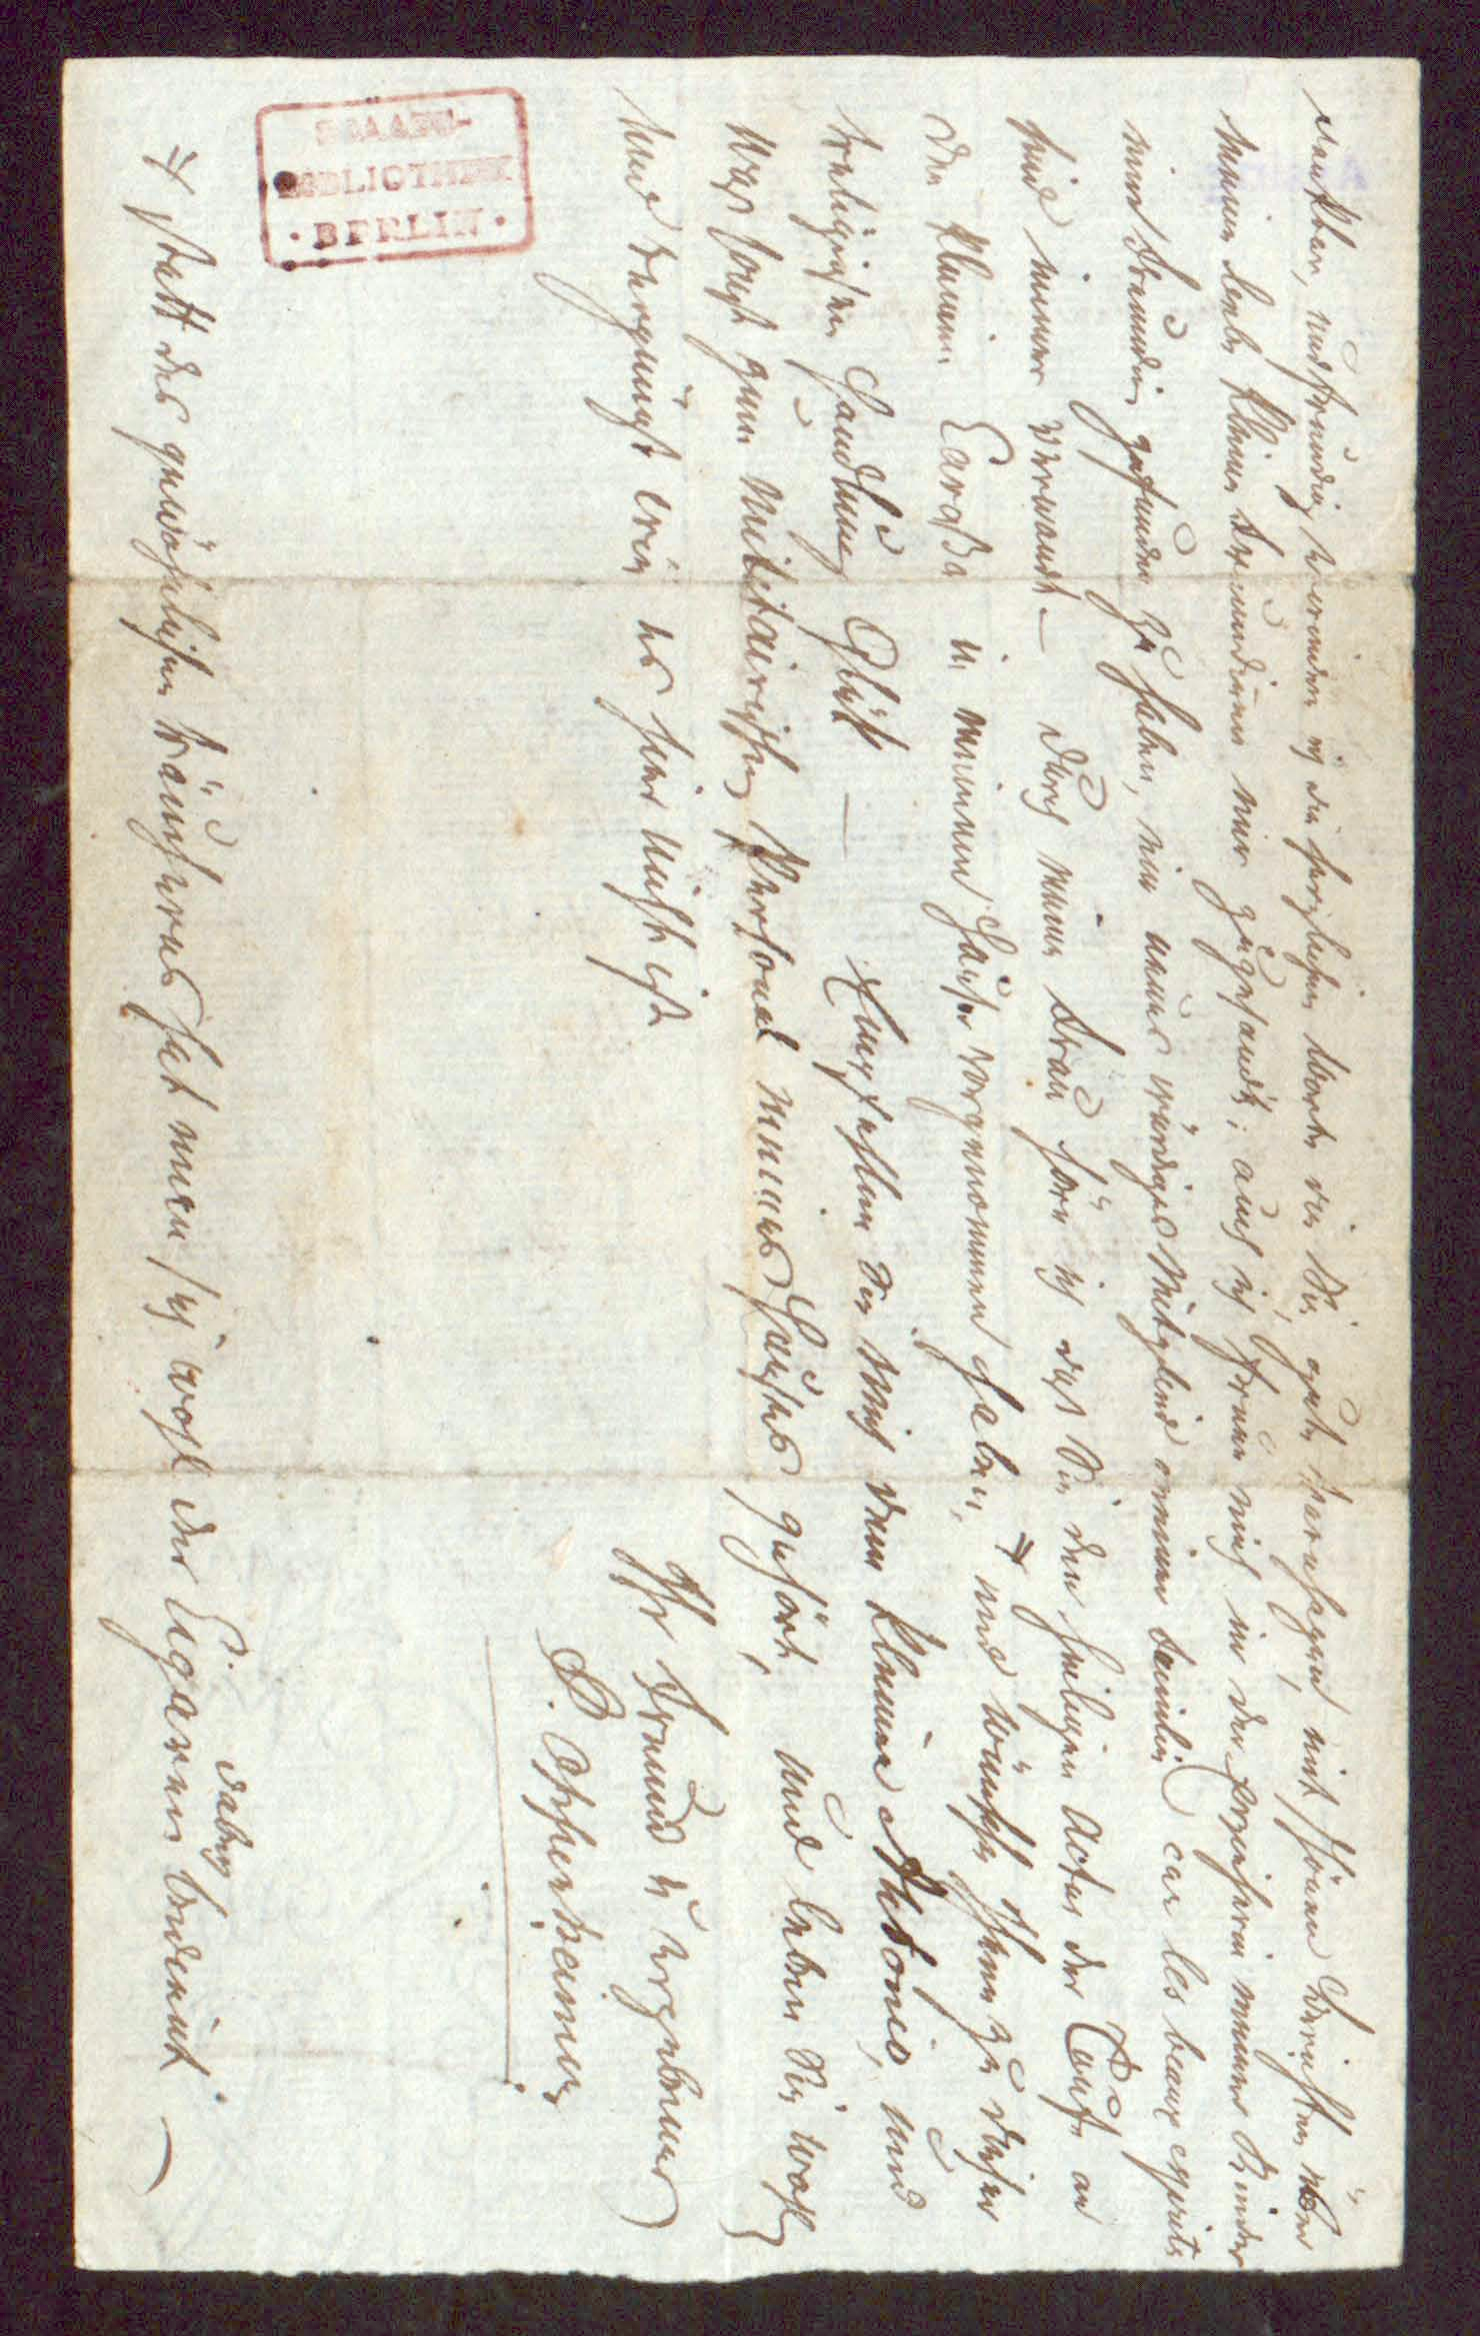 danken, und freundig werden ich die herzlichen Worte die Sie, gute hersagen, mit schönen Berichten über
meine liebe kleine Freundinn mir zugesandt; auch ich freue mich in der Erzieherin meiner Kinder
eine Freundin gefunden zu haben, ein neues würdiges Mitglied meiner Familie car les beaux esprits
sind immer verwandt — durch meine Frau hör ich daß Sie den heiligen Actus der Taufe an
der kleinen Carossa in meinem Hause vorgenommen haben, # und wünsche Ihnen zu dieser
heiligen Handlung Glük — Empfehlen Sie mich dem kleinen Adonis, und
was sonst zum militairischen Personal meines Hauses gehört, und leben Sie wohl
und vergnügt bis es hier nicht ist
Ihr Freund u ergebener
S. Oppenheimer
# statt des gewöhnlichen Räucherns hat man sich wohl der Cigarren dabey bedient —
STAATS-
BIBLIOTHEK
· BERLIN ·